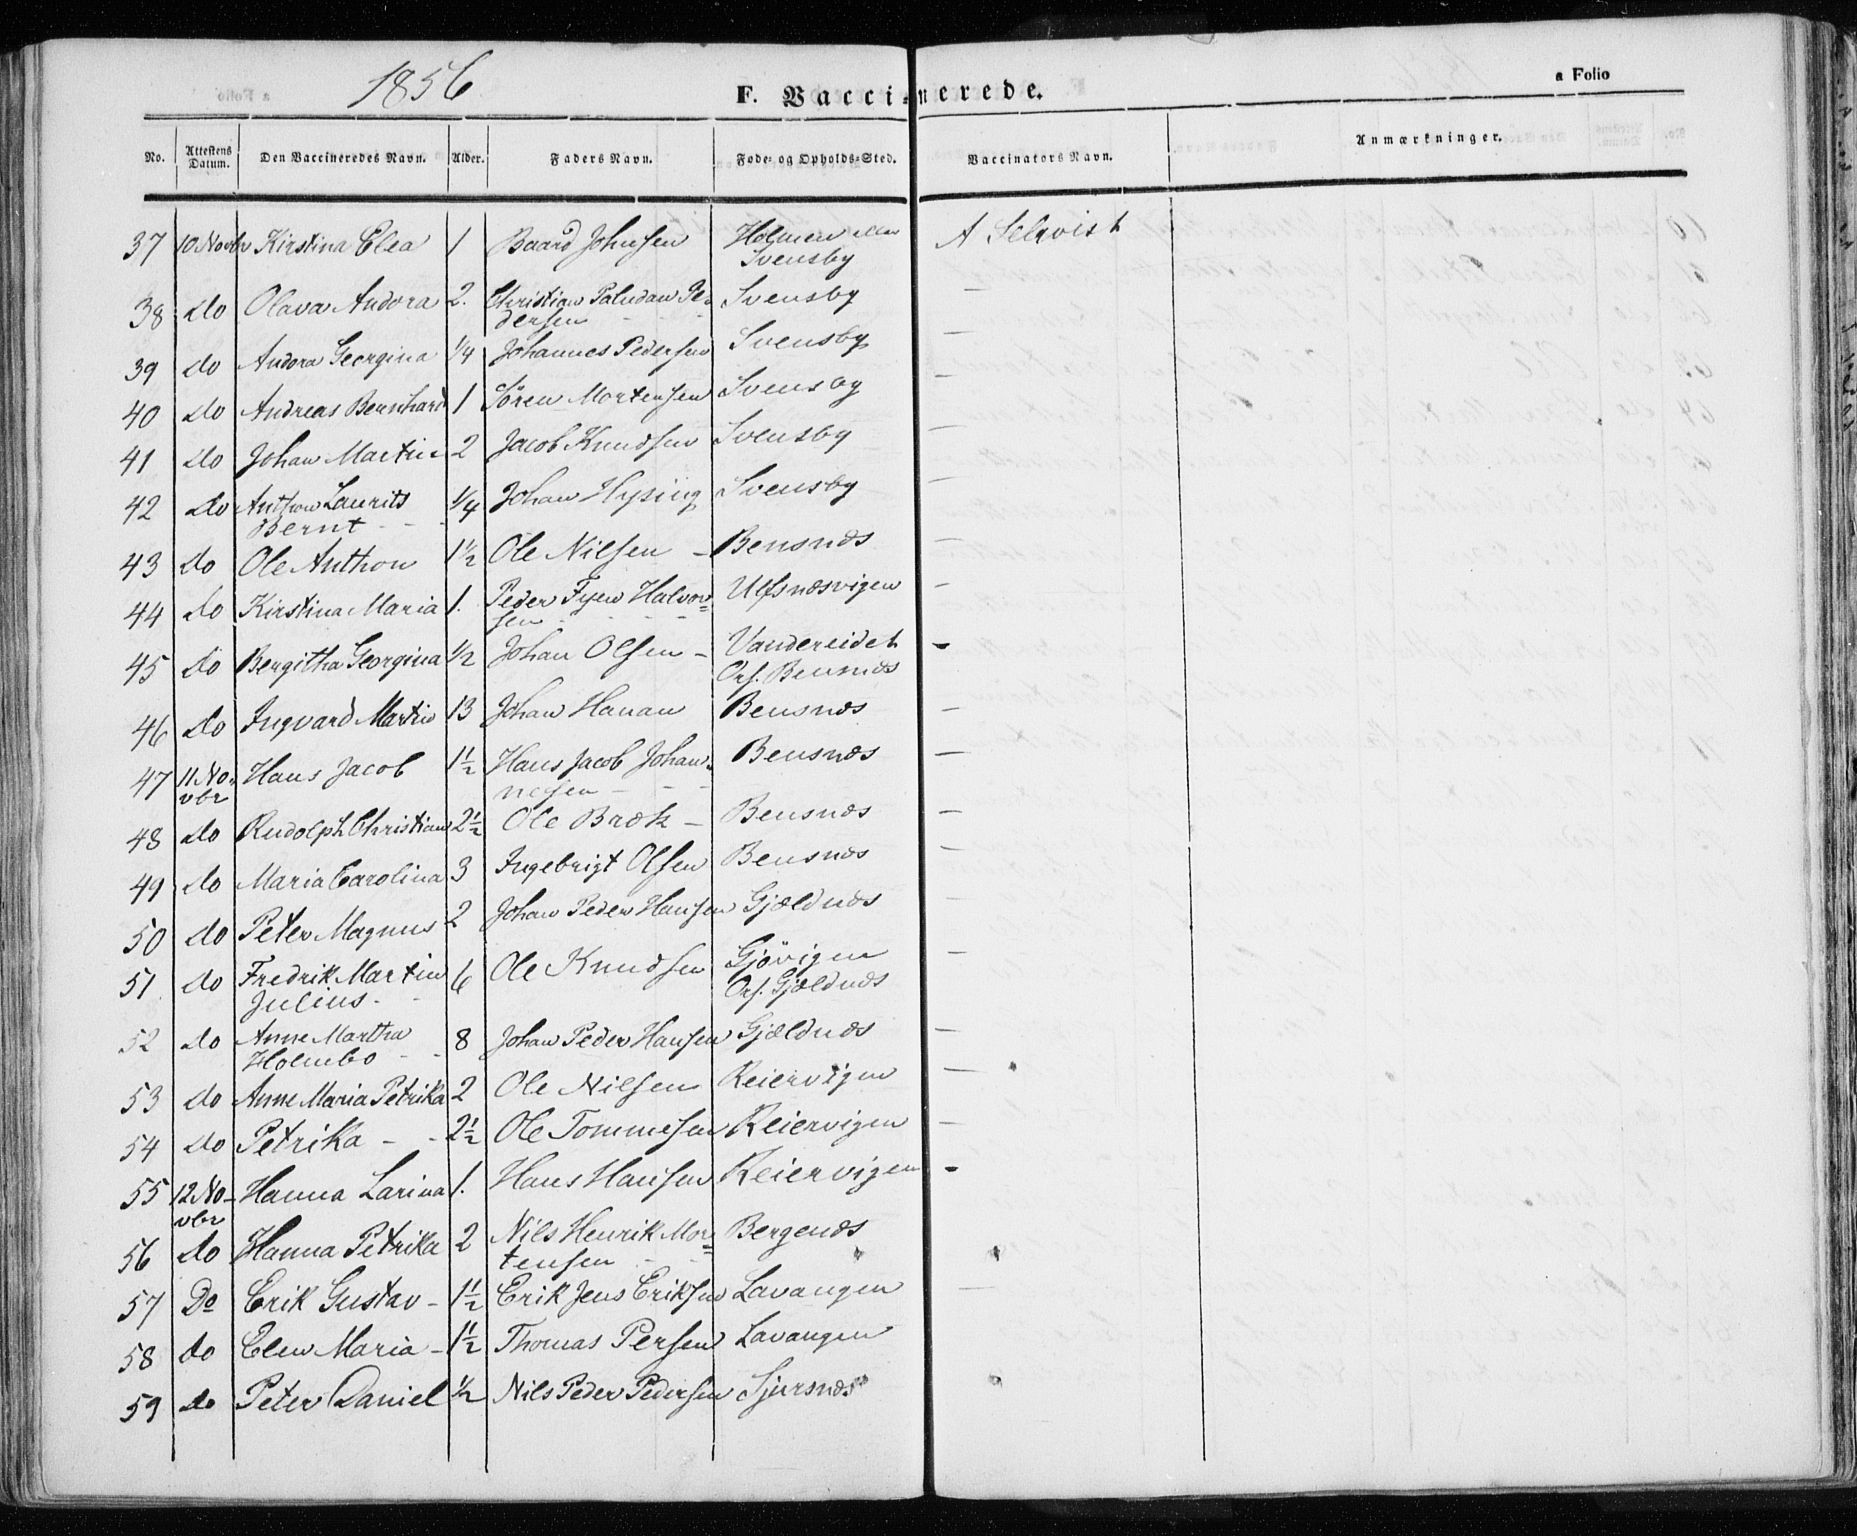 1856
F. Vaccinerede.
a Folio
No. Attestens Datum. Den Vaccineredes Navn. Alder. Faders Navn. Føde- og Opholds-Sted. Vaccinators Navn. Anmærkninger.
37 10 Novbr Kirstina Elea 1 Baard Johnsen Holmen
Svensby
38 do Olava Andora 2. Christian Paludan Pe-
dersen - - - Svensby —
39 do Andora Georgina 1/4 Johannes Pedersen Svensby —
40 do Andreas Bernhard 1 Sören Mortensen Svensby —
41 do Johan Martin 2 Jacob Knudsen Svensby —
42 do Anthon Laurits
Bernt - - - 1/4 Johan Hysing Svensby —
43 do Ole Anthon 1 1/2 Ole Nilsen - Bensnæs —
44 do Kirstina Maria 1. Peder Fyen Halvor=
sen - - - Ulfsnæsvigen —
45 do Bergitha Georgina 1/2 Johan Olsen - Vandereidet
Orf. Bensnæs -
46 do Ingvard Martin 13 Johan Hanan Bensnæs —
47 11 No-
vbr Hans Jacob 1 1/2 Hans Jacob Johan-
nesen - - - Bensnæs —
48 do Rudolph Christian 2 1/2 Ole Bræk - Bensnæs —
49 do Maria Carolina 3 Ingebrigt Olsen Bensnæs —
50 do Peter Magnus 2 Johan Peder Hansen Gjældnæs —
51 do Fredrik Martin
Julius - - 6 Ole Knudsen Gjövigen
Orf. Gjældnæs —
52 do Anne Martha
Holmbo - - 8 Johan Peder Hansen Gjældnæs —
53 do Anne Maria Petrika 2 Ole Nilsen Reiervigen —
54 do Petrika - - 2 1/2 Ole Tommesen Reiervigen —
55 12 No-
vbr Hanna Larina 1. Hans Hansen Reiervigen -
56 do Hanna Petrika 2 Nils Henrik Mor=
tensen - - Bergenæs
57 Do Erik Gustav - 1 1/2 Erik Jens Eriksen Lavangen —
58 do Elen Maria - 1 1/2 Thomas Persen Lavangen
59 do Peter Daniel 1/2 Nils Peder Pedersen Sjursnæs